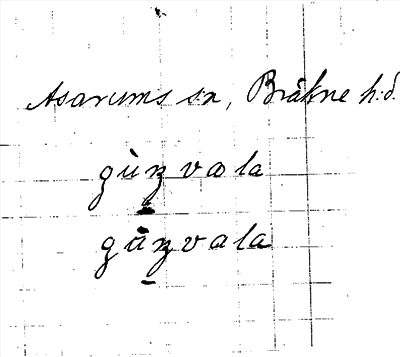 Asarums sn, Bräkne h:d.
gùnvala
gùnvala